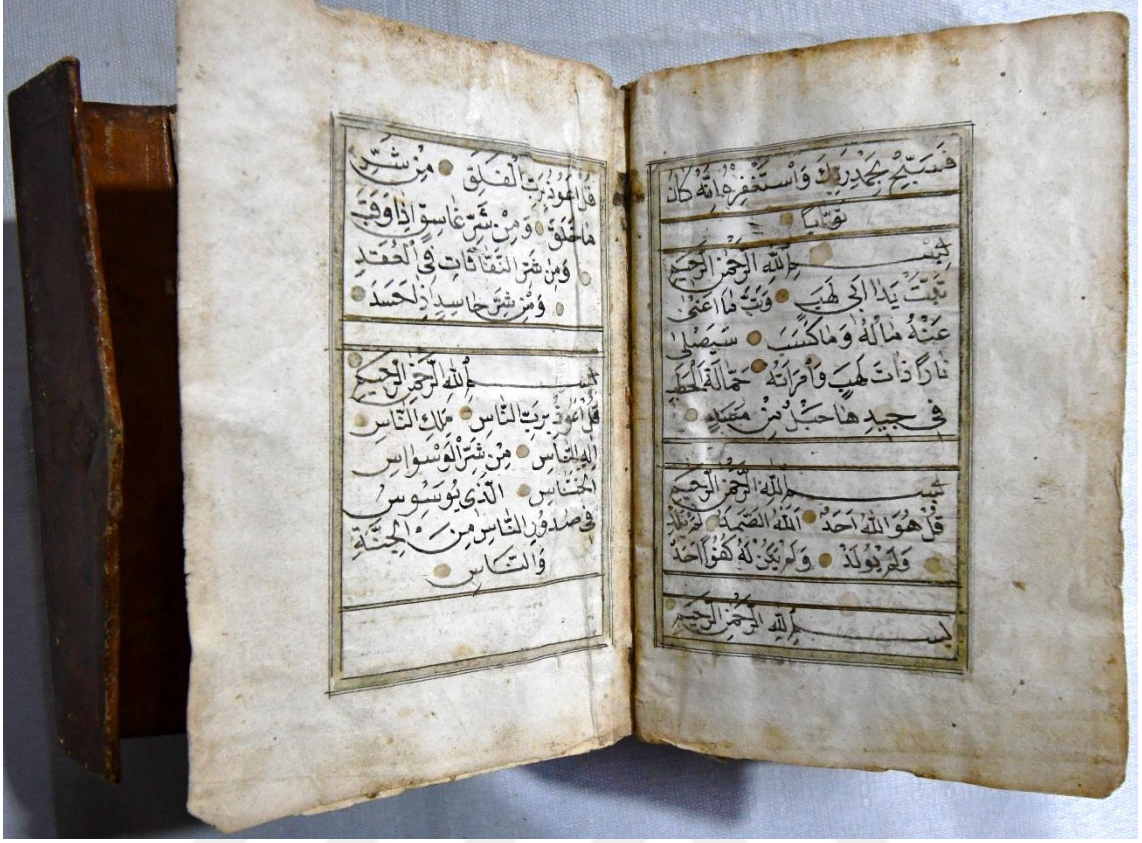 فَسَبِّحْ بِحَمْدِ رَبِّكَ وَاسْتَغْفِرْهُ اِنَّهُ كَانَ
تَوَّابًا
بِسْمِ اللّٰهِ الرَّحْمٰنِ الرَّحِيمِ
تَبَّتْ يَدَا اَبِي لَهَبٍ وَتَبَّ مَا اَغْنٰى
عَنْهُ مَالُهُ وَمَا كَسَبَ سَيَصْلٰى
نَارًا ذَاتَ لَهَبٍ وَامْرَاَتُهُ حَمَّالَةَ الْحَطَبِ
فِي جِيدِهَا حَبْلٌ مِنْ مَسَدٍ
بِسْمِ اللّٰهِ الرَّحْمٰنِ الرَّحِيمِ
قُلْ هُوَ اللّٰهُ اَحَدٌ اَللّٰهُ الصَّمَدُ لَمْ يَلِدْ
وَلَمْ يُولَدْ وَلَمْ يَكُنْ لَهُ كُفُوًا اَحَدٌ
بِسْمِ اللّٰهِ الرَّحْمٰنِ الرَّحِيمِ
قُلْ اَعُوذُ بِرَبِّ الْفَلَقِ مِنْ شَرِّ
مَا خَلَقَ وَمِنْ شَرِّ غَاسِقٍ اِذَا وَقَبَ
وَمِنْ شَرِّ النَّفَّاثَاتِ فِي الْعُقَدِ
وَمِنْ شَرِّ حَاسِدٍ اِذَا حَسَدَ
بِسْمِ اللّٰهِ الرَّحْمٰنِ الرَّحِيمِ
قُلْ اَعُوذُ بِرَبِّ النَّاسِ مَلِكِ النَّاسِ
اِلٰهِ النَّاسِ مِنْ شَرِّ الْوَسْوَاسِ
الْخَنَّاسِ الَّذِي يُوَسْوِسُ
فِي صُدُورِ النَّاسِ مِنَ الْجِنَّةِ
وَالنَّاسِ